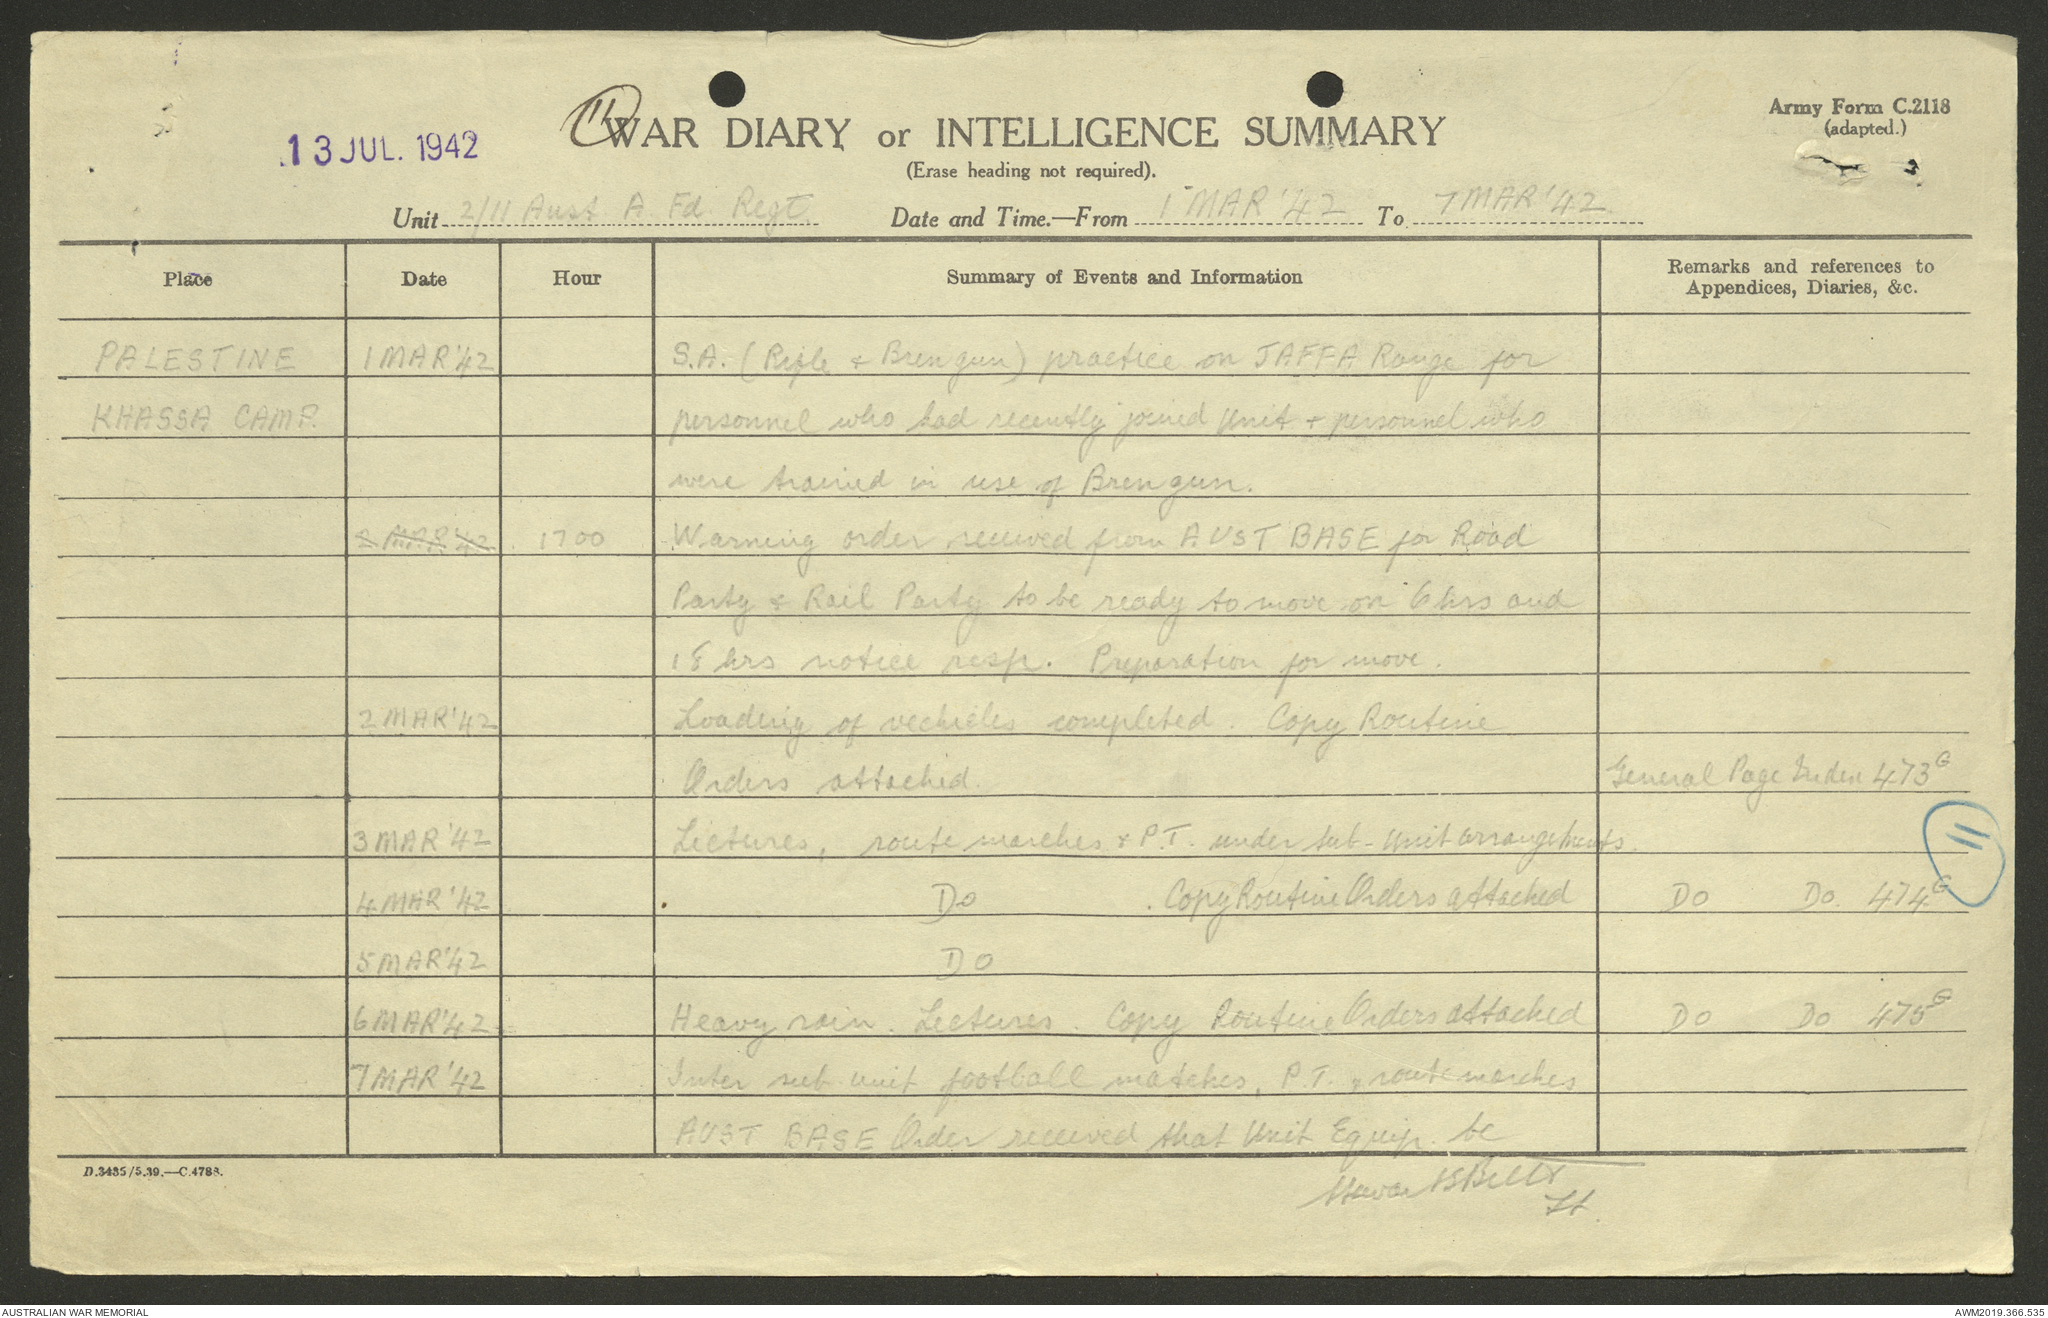 Army Form C.2118
(adapted.)
13 JUL. 1942
11
WAR DIARY or INTELLIGENCE SUMMARY
(Erase heading not required).
Unit 2/11 Aust A Fd Regt. Date and Time.—From 1 MAR '42 To 7 MAR '42
Place Date Hour Summary of Events and Information Remarks and references to Appendices, Diaries, &c.
PALESTINE 1 MAR '42 S.A. (Rifle & Bren gun) practice on JAFFA Range for
KHASSA CAMP. personnel who had recently joined Unit & personnel who
were trained in use of Bren gun.
2 MAR 42 1700 Warning order received from AUST BASE for Road
Party & Rail Party to be ready to move on 6 hrs and
18 hrs notice resp. Preparation for move.
2 MAR '42 Loading of vechicles completed. Copy Routine
Orders attached. General Page Index 473G
3 MAR '42 Lectures, route marches & P.T. under sub-unit arrangements.
11
4 MAR '42 Do . Copy Routine Orders attached Do Do. 474G
5 MAR '42 Do
6 MAR '42 Heavy rain. Lectures. Copy Routine Orders attached Do Do 475G
7 MAR '42 Inter sub unit football matches, P.T. & route marches
AUST BASE Order received that Unit Equip. be
Lt.
D.3435/5.39.—C.4788.
AUSTRALIAN WAR MEMORIAL AWM2019.366.535